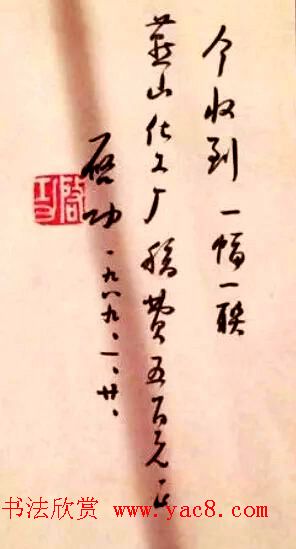 今收到一幅一联
燕山化工厂稿费五百元正
启功 一九八九、一、廿、
启功
书法欣赏 www.yac8.com